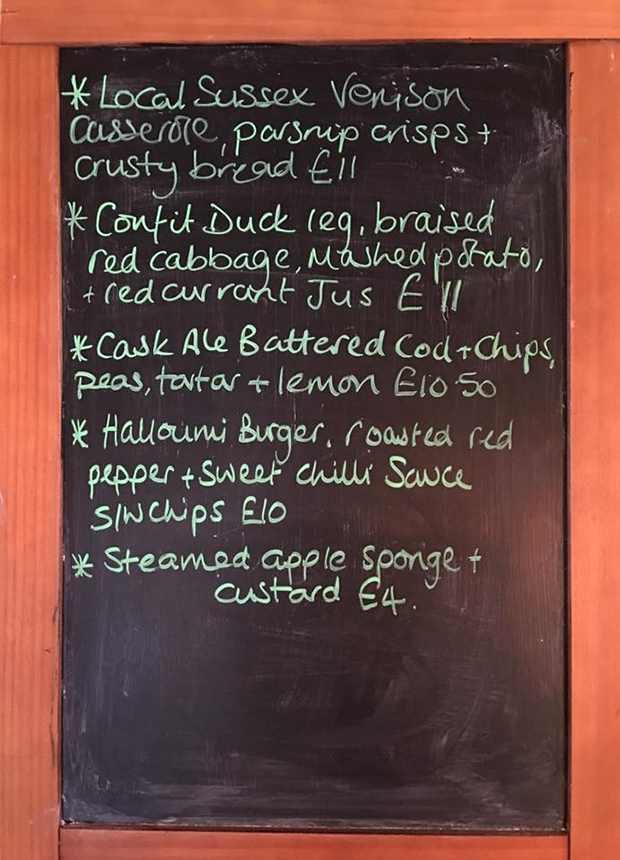 * Local Sussex Venison
Casserole, parsnip crisps +
crusty bread £11
* Confit Duck leg, braised
red cabbage, Mashed potato,
+ redcurrant Jus £11
* Cask Ale Battered Cod + Chips,
peas, tartar + lemon £10 50
* Halloumi Burger, roasted red
pepper + Sweet chilli Sauce
S/W chips £10
* Steamed apple sponge +
custard £4.